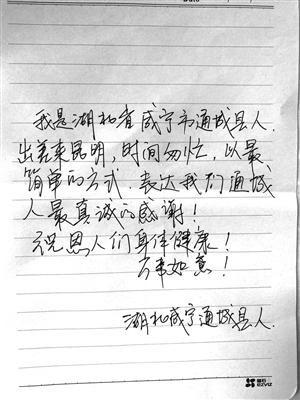 Date
我是湖北省咸宁市通城县人.
出差来昆明,时间匆忙,以最
简单的方式.表达我们通城
人最真诚的感谢!
祝恩人们身体健康!
万事如意!
湖北咸宁通城县人.
萤石
EZVIZ